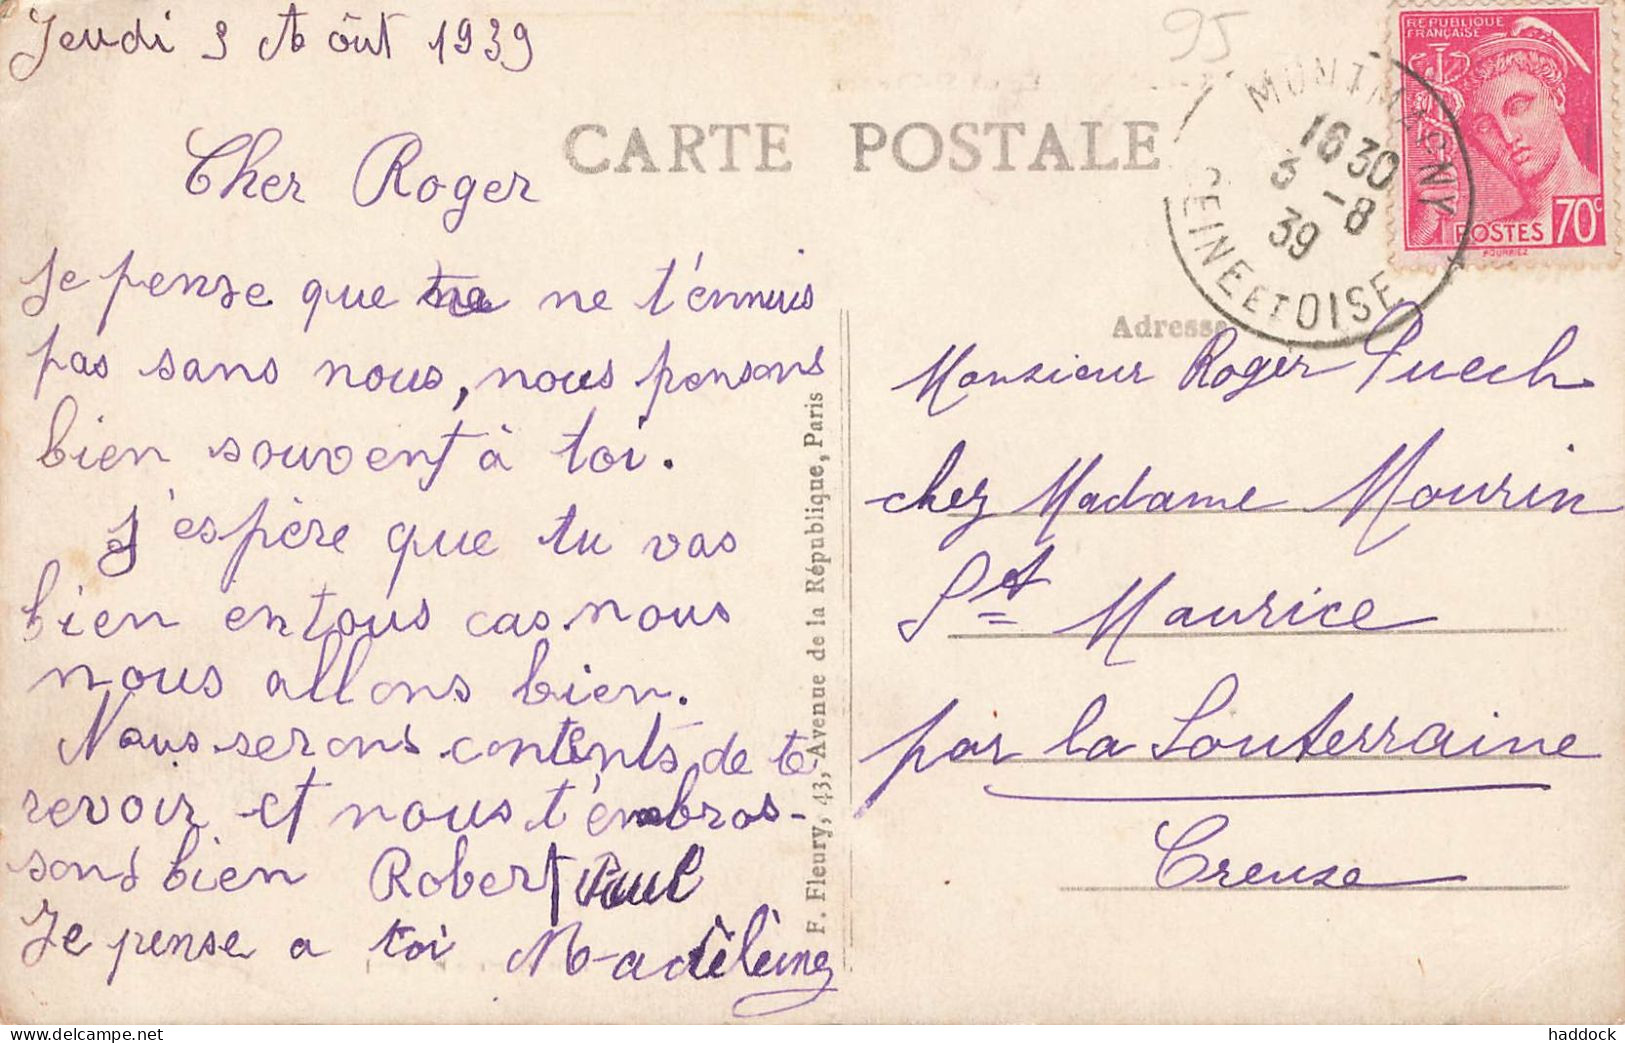 Jeudi 3 Août 1939
95
CARTE POSTALE
Cher Roger
je pense que ne t'énnuis
pas sans nous, nous pensons
bien souvent à toi.
J'espère que tu vas
bien en tous cas nous
nous allons bien.
Nous serons contents de te
revoir et nous t'embras-
sons bien Robert Paul
Je pense a toi Madeleine
F. Fleury, 43, Avenue de la République, Paris
REPUBLIQUE
FRANÇAISE
POSTES 70c
POURRIEZ
MONTMAGNY
1630
3 -8
39
SEINE ET OISE
Adresse
Monsieur Roger Puech
chez Madame Mourin
St Maurice
par la Souterraine
Creuse
delcampe.net
haddock